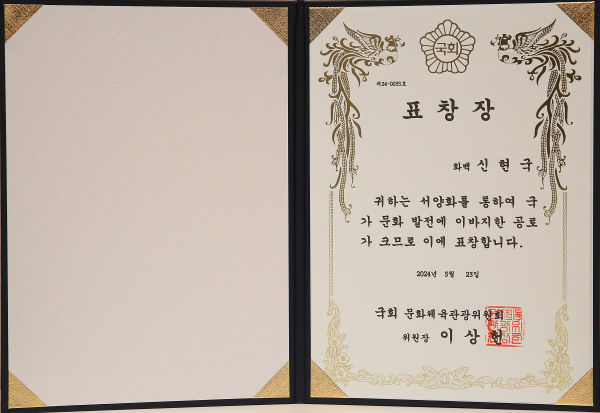 국회
제24-0035호
표창장
화백 신현국
귀하는 서양화를 통하여 국
가 문화 발전에 이바지한 공로
가 크므로 이에 표창합니다.
2024년 5월 23일
국회 문화체육관광위원회
위원장 이상헌